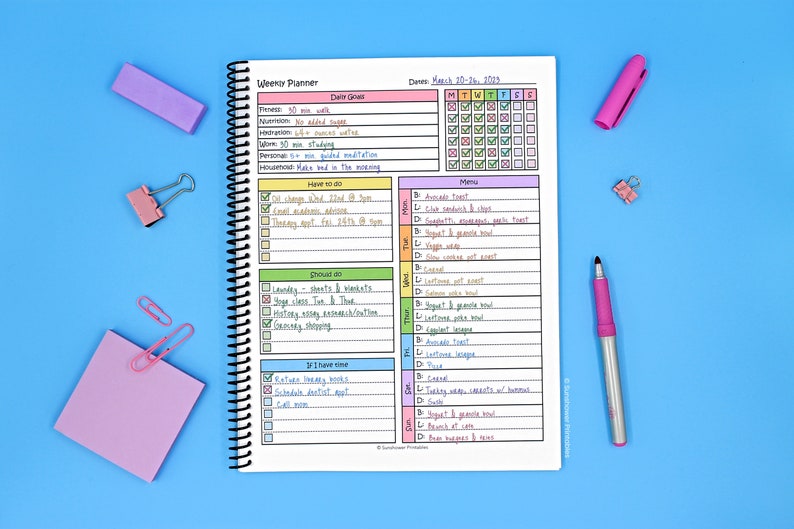 Weekly Planner
Dates: March 20-26, 2023
Daily Goals
Fitness: 30 min. walk
Nutrition: No added sugar
Hydration: 64+ ounces water
Work: 30 min. studying
Personal: 5+ min. guided meditation
Household: Make bed in the morning
M T W T F S S
Have to do
Oil change Wed. 22nd @ 3pm
Email academic advisor
Therapy appt. Fri. 24th @ 5pm
Should do
Laundry - sheets & blankets
Yoga class Tue. & Thur.
History essay research/outline
Grocery shopping
If I have time
Return library books
Schedule dentist appt.
Call mom
Menu
Mon.
B: Avocado toast
L: Club sandwich & chips
D: Spaghetti, asparagus, garlic toast
Tue.
B: Yogurt & granola bowl
L: Veggie wrap
D: Slow cooker pot roast
Wed.
B: Cereal
L: Leftover pot roast
D: Salmon poke bowl
Thur.
B: Yogurt & granola bowl
L: Leftover poke bowl
D: Eggplant lasagna
Fri.
B: Avocado toast
L: Leftover lasagna
D: Pizza
Sat.
B: Cereal
L: Turkey wrap, carrots w/ hummus
D: Sushi
Sun.
B: Yogurt & granola bowl
L: Brunch at cafe
D: Bean burgers & fries
© Sunshower Printables
© Sunshower Printables